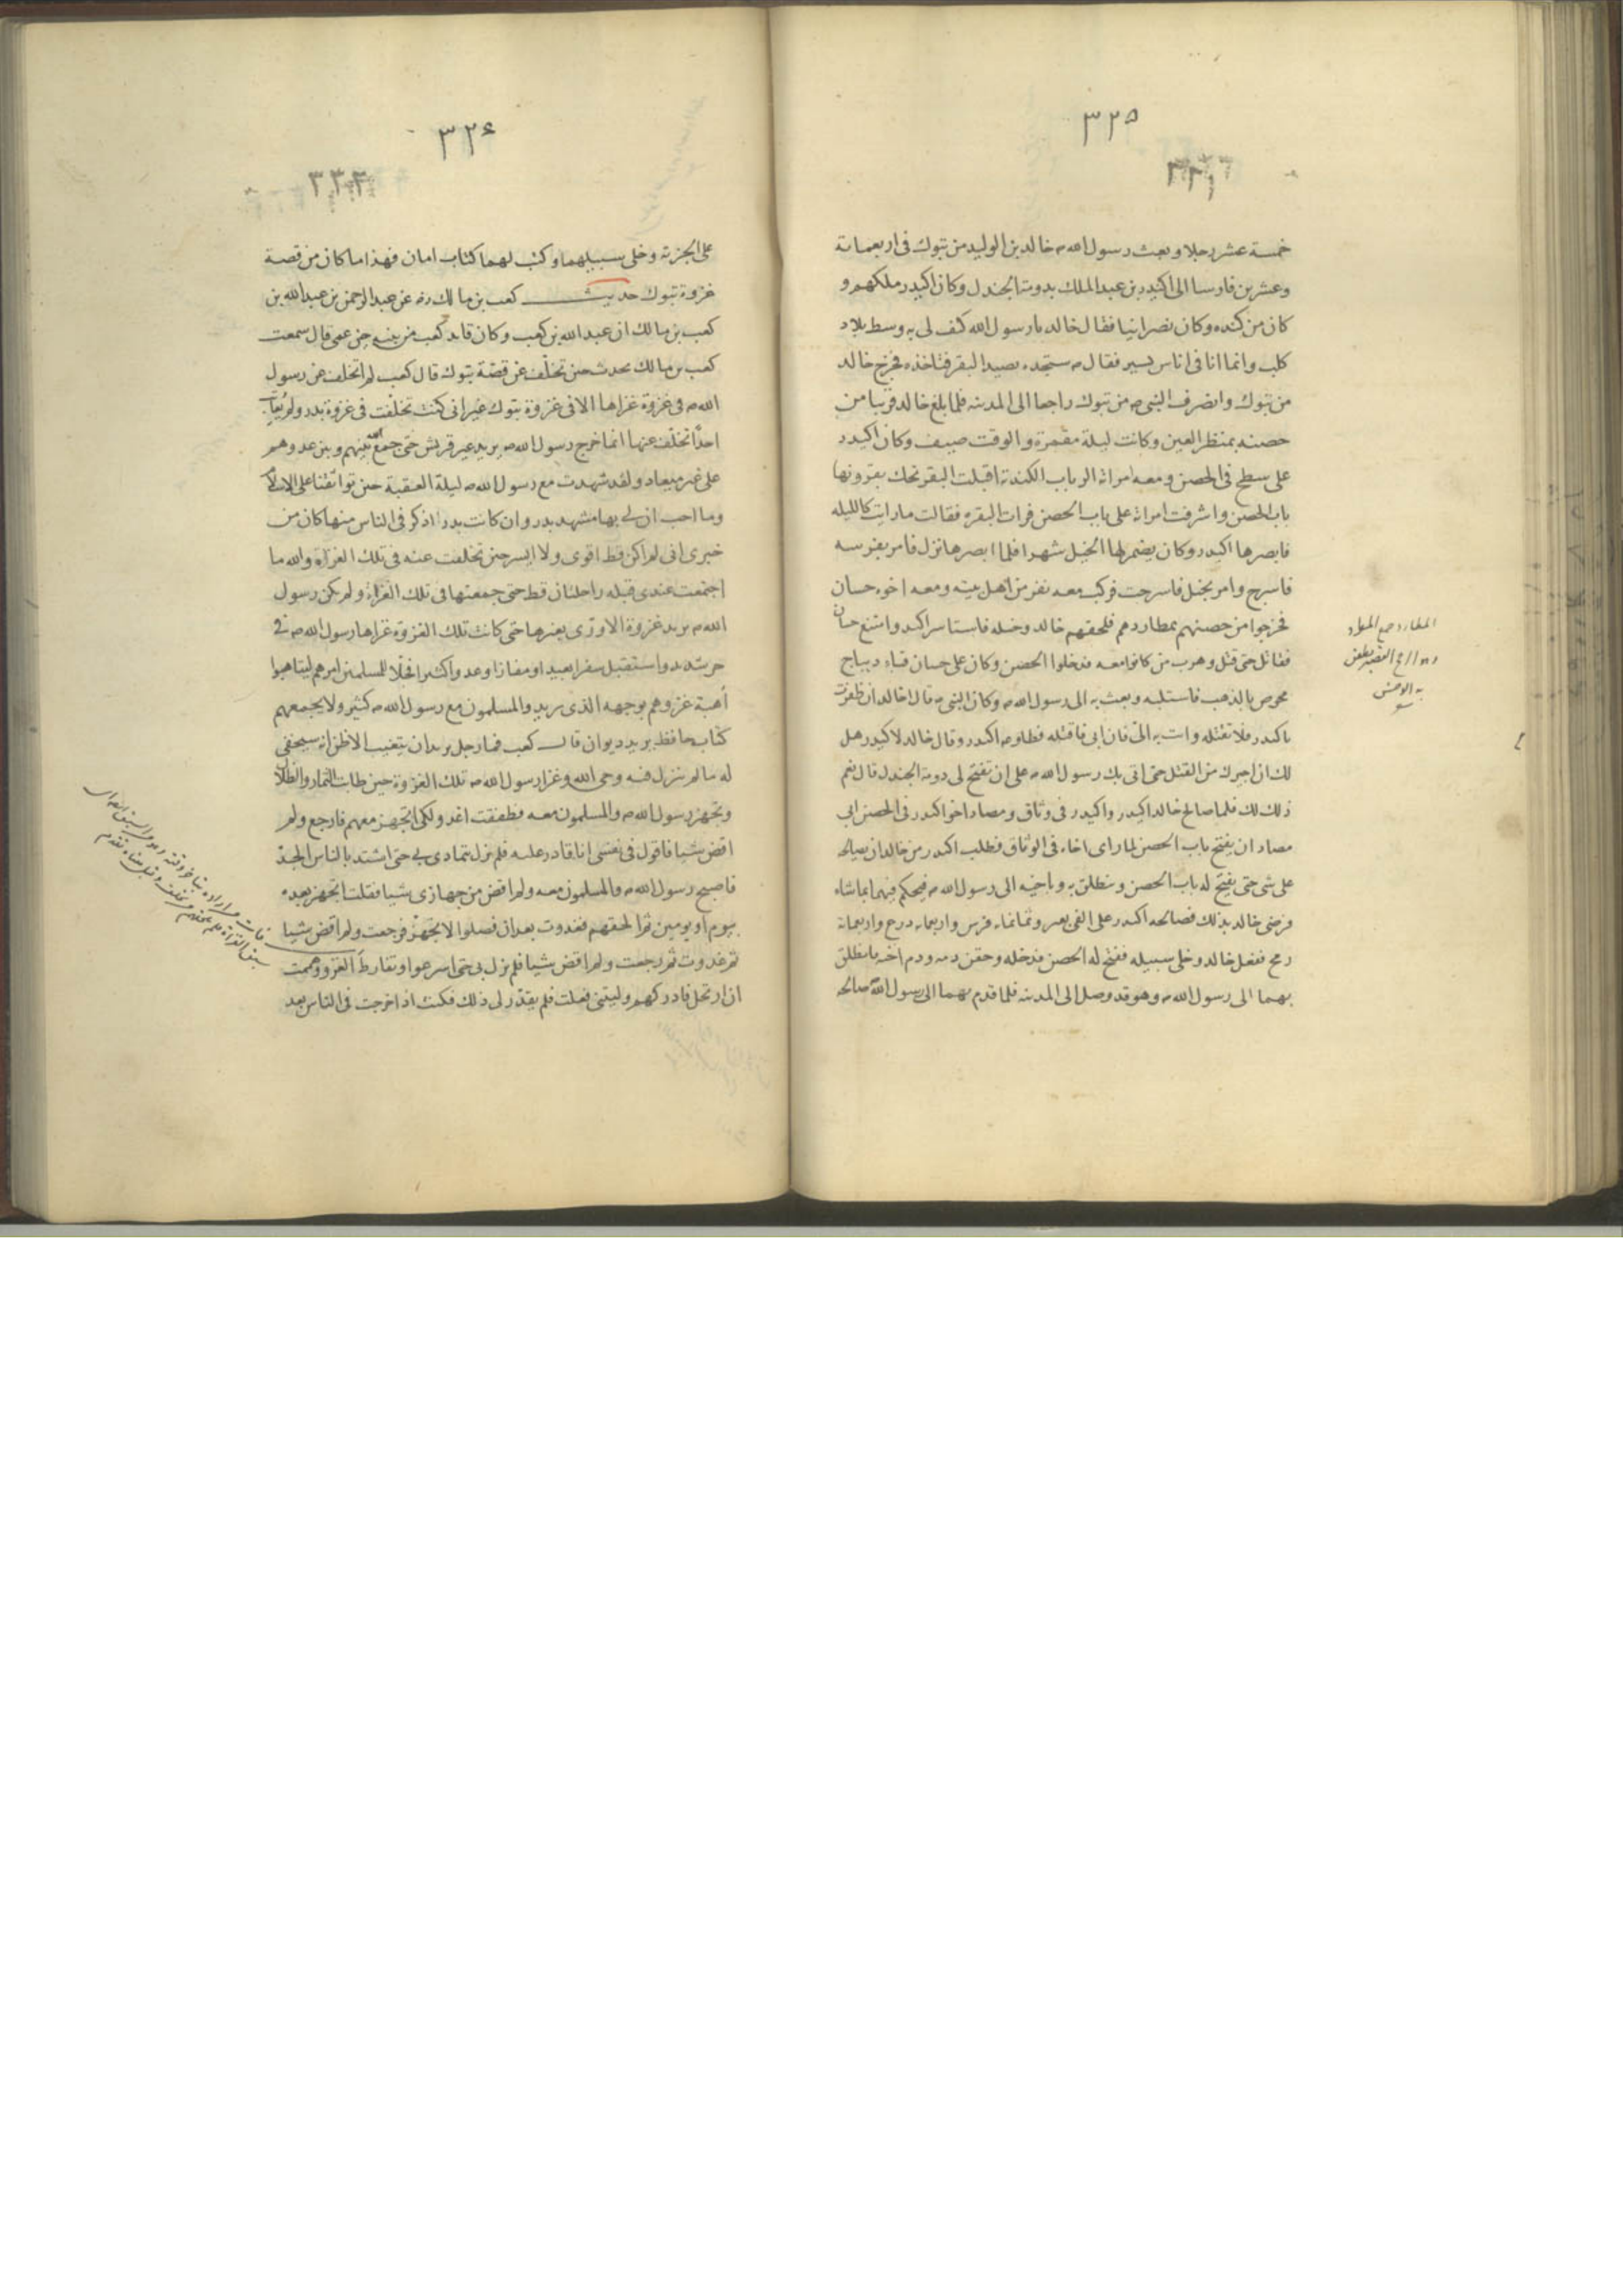 ٣٢٥
٣٣١
خمسة عشر رجلا وبعث رسول الله ص خالد بن الوليد من تبوك في اربعماية
وعشرين فارسا الى اكيدر بن عبد الملك بدومة الجندل وكان اكيدر ملكهم و
كان من كنده وكان نصرانيا فقال خالد يا رسول الله كيف لي به وسط بلاد
كلب وانما انا في اناس يسير فقال ص ستجده يصيد البقر فتاخذه فخرج خالد
من تبوك وانصرف النبي ص من تبوك راجعا الى المدينه فلما بلغ خالد قريبا من
حصنه بمنظر العين وكانت ليلة مقمرة والوقت صيف وكان اكيدر
على سطح في الحصن ومعه امراته الرباب الكندية اقبلت البقر تحك بقرونها
باب الحصن واشرفت امراته على باب الحصن فرات البقره فقالت ما رايت كالليله
فابصرها اكيدر وكان يضمر لها الخيل شهرا فلما ابصرها نزل فامر بفرسه
فاسرج وامر بخيل فاسرجت فركب معه نفر من اهل بيته ومعه اخوه حسان
فخرجوا من حصنهم بمطاردهم فلحقهم خالد وخيله فاستاسر اكيدر وامتنع حسان
فقاتل حتى قتل وهرب من كانوا معه فدخلوا الحصن وكان على حسان قباء ديباج
مخوص بالذهب فاستلبه وبعث به الى رسول الله ص وكان النبي ص قال لخالد ان ظفرت
باكيدر فلا تقتله وات به الي فان ابى فاقتله فطاوعه اكيدر وقال خالد لاكيدر هل
لك ان اجيرك من القتل حتى اتى بك رسول الله ص على ان تفتح لي دومة الجندل قال نعم
ذلك لك فلما صالح خالد اكيدر واكيدر في وثاق ومصاد اخو اكيدر في الحصن ابى
مصاد ان يفتح باب الحصن لما راى اخاه في الوثاق فطلب اكيدر من خالد ان يصالحه
على شي حتى يفتح له باب الحصن وينطلق به وباخيه الى رسول الله ص فيحكم فيهما بما شاء
فرضي خالد بذلك فصالحه اكيدر على الفي بعير وثمانماء فرس واربعمايه درع واربعماية
رمح ففعل خالد وخلى سبيله ففتح له الحصن فدخله وحقن دمه ودم اخيه وانطلق
بهما الى رسول الله ص وهو قد وصل الى المدينه فلما قدم بهما الى رسول الله صالحه
المطارد جمع المطرد
الرمح القصير يطعن
به الوحش
٣٢۶
٣٣٢
على الجزية وخلى سبيلهما وكتب لهما كتاب امان فهذا ما كان من قصة
غزوة تبوك حديث كعب بن مالك رضه عن عبد الرحمن بن عبد الله بن
كعب بن مالك ان عبد الله بن كعب وكان قايد كعب من بنيه حين عمى قال سمعت
كعب بن مالك يحدث حين تخلّف عن قصّة تبوك قال كعب لم اتخلف عن رسول
الله ص في غزوة غزاها الا في غزوة تبوك غير اني كنت تخلّفت في غزوة بدر ولم يُعاتِب
احدًا تخلّف عنها انما خرج رسول الله ص يريد عير قريش حتى جمع الله بينهم وبين عدوهم
على غير ميعاد ولقد شهدت مع رسول الله ص ليلة العقبة حين تواثقنا على الاسلام
وما احب ان لي بها مشهد بدر وان كانت بدر اذكر في الناس منها كان من
خبري اني لم اكن قط اقوى ولا ايسر حين تخلفت عنه في تلك الغزاة والله ما
اجتمعت عندي قبله راحلتان قط حتى جمعتها في تلك الغزاة ولم يكن رسول
الله ص يريد غزوة الا ورّى بغيرها حتى كانت تلك الغزوة غزاها رسول الله ص في
حر شديد واستقبل سفرا بعيدا ومفازا وعدوا كثيرا فجلّا للمسلمين امرهم ليتاهبوا
أهبة غزوهم بوجهه الذي يريد والمسلمون مع رسول الله ص كثير ولا يجمعهم
كتاب حافظ يريد ديوان قال كعب فما رجل يريد ان يتغيب الا ظن انه سيخفى
له ما لم ينزل فيه وحي الله وغزا رسول الله ص تلك الغزوة حين طابت الثمار والظلال
وتجهز رسول الله ص والمسلمون معه وطفقت اغدو لكي اتجهز معهم فارجع ولم
اقض شيا فاقول في نفسي انا قادر عليه فلم يزل يتمادى بي حتى اشتد بالناس الجدّ
فاصبح رسول الله ص والمسلمون معه ولم اقض من جهازي شيا فقلت اتجهز بعده
بيوم او يومين ثم الحقهم فغدوت بعد ان فصلوا لاتجهّز فرجعت ولم اقض شيا
ثم غدوت ثم رجعت ولم اقض شيا فلم يزل بي حتى اسرعوا وتفارط الغزو وهممت
ان ارتحل فادركهم وليتني فعلت فلم يقدّر لي ذلك فكنت اذا خرجت في الناس بعد